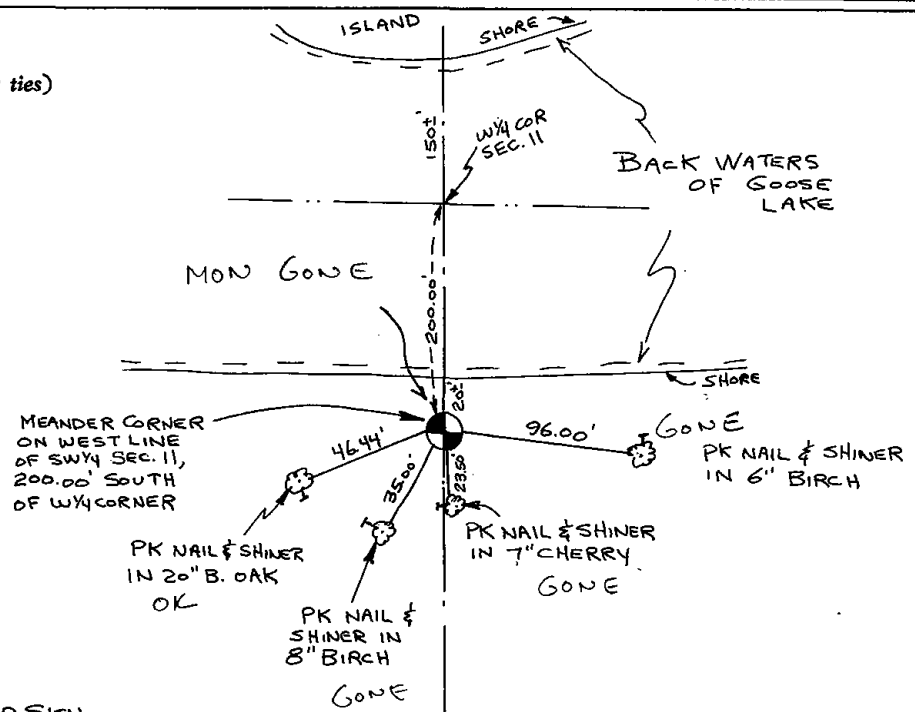 ISLAND
SHORE
ties)
150±'
W1/4 COR
SEC. 11
BACK WATERS
OF GOOSE
LAKE
MON GONE
200.00'
SHORE
20'±
MEANDER CORNER
ON WEST LINE
OF SW1/4 SEC. 11,
200.00' SOUTH
OF W1/4 CORNER
46.44'
96.00'
GONE
PK NAIL & SHINER
IN 6" BIRCH
35.00'
23.50'
PK NAIL & SHINER
IN 20" B. OAK
OK
PK NAIL & SHINER
IN 7" CHERRY
GONE
PK NAIL &
SHINER IN
8" BIRCH
GONE